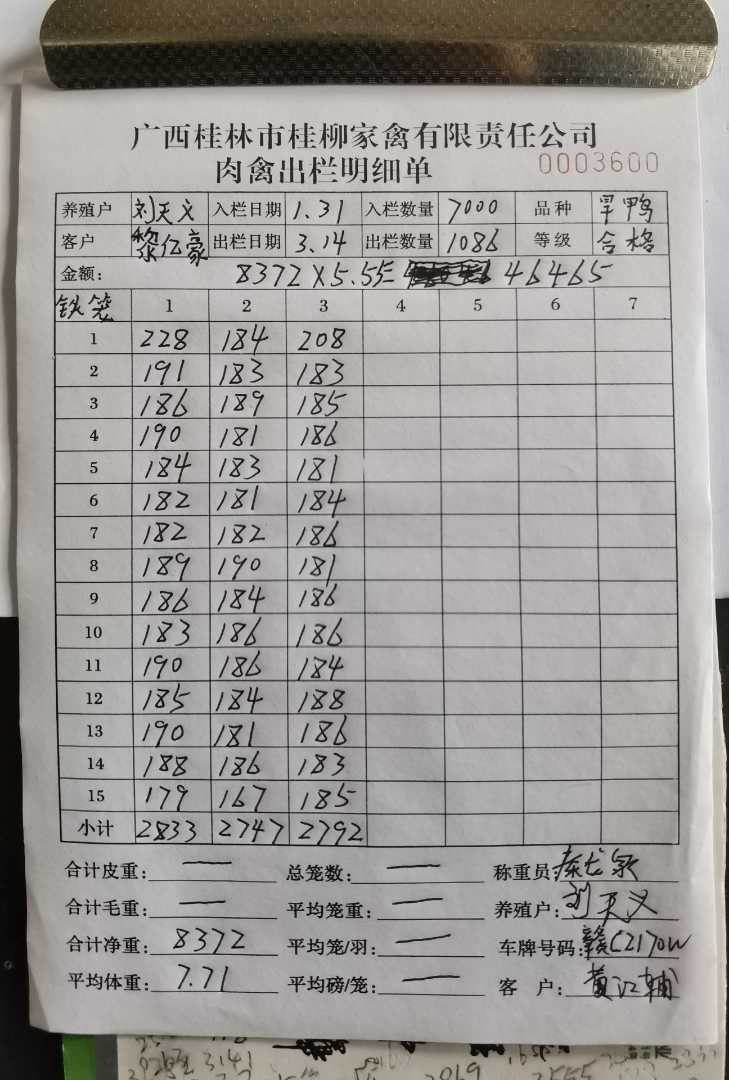 广西桂林市桂柳家禽有限责任公司
肉禽出栏明细单 0003600
养殖户 刘天义 入栏日期 1.31 入栏数量 7000 品种 旱鸭
客户 黎亿豪 出栏日期 3.14 出栏数量 1086 等级 合格
金额: 8372×5.55 46465
铁笼 1 2 3 4 5 6 7
1 228 184 208
2 191 183 183
3 186 189 185
4 190 181 186
5 184 183 181
6 182 181 184
7 182 182 186
8 189 190 181
9 186 184 186
10 183 186 186
11 190 186 184
12 185 184 188
13 190 181 186
14 188 186 183
15 179 167 185
小计 2833 2747 2792
合计皮重: — 总笼数: — 称重员:
合计毛重: — 平均笼重: — 养殖户: 刘天义
合计净重: 8372 平均笼/羽: — 车牌号码: 赣C2170W
平均体重: 7.71 平均磅/笼: — 客户: 黄江辅
3141